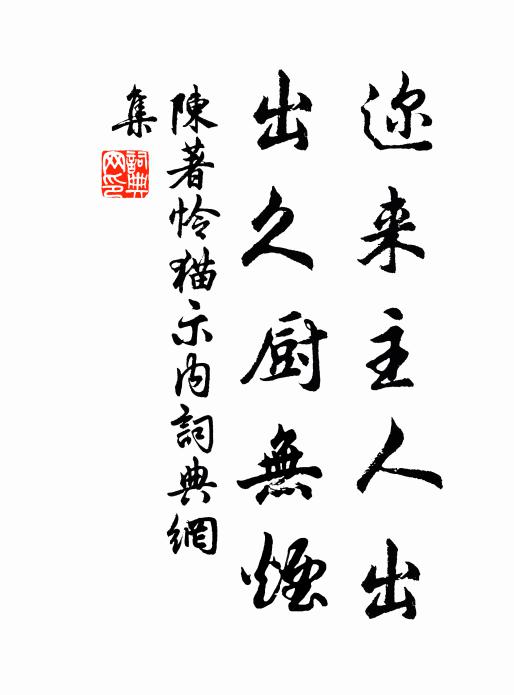 迩来主人出
出久厨無煙
陳著怜猫示内詞典網
集
詞典网印